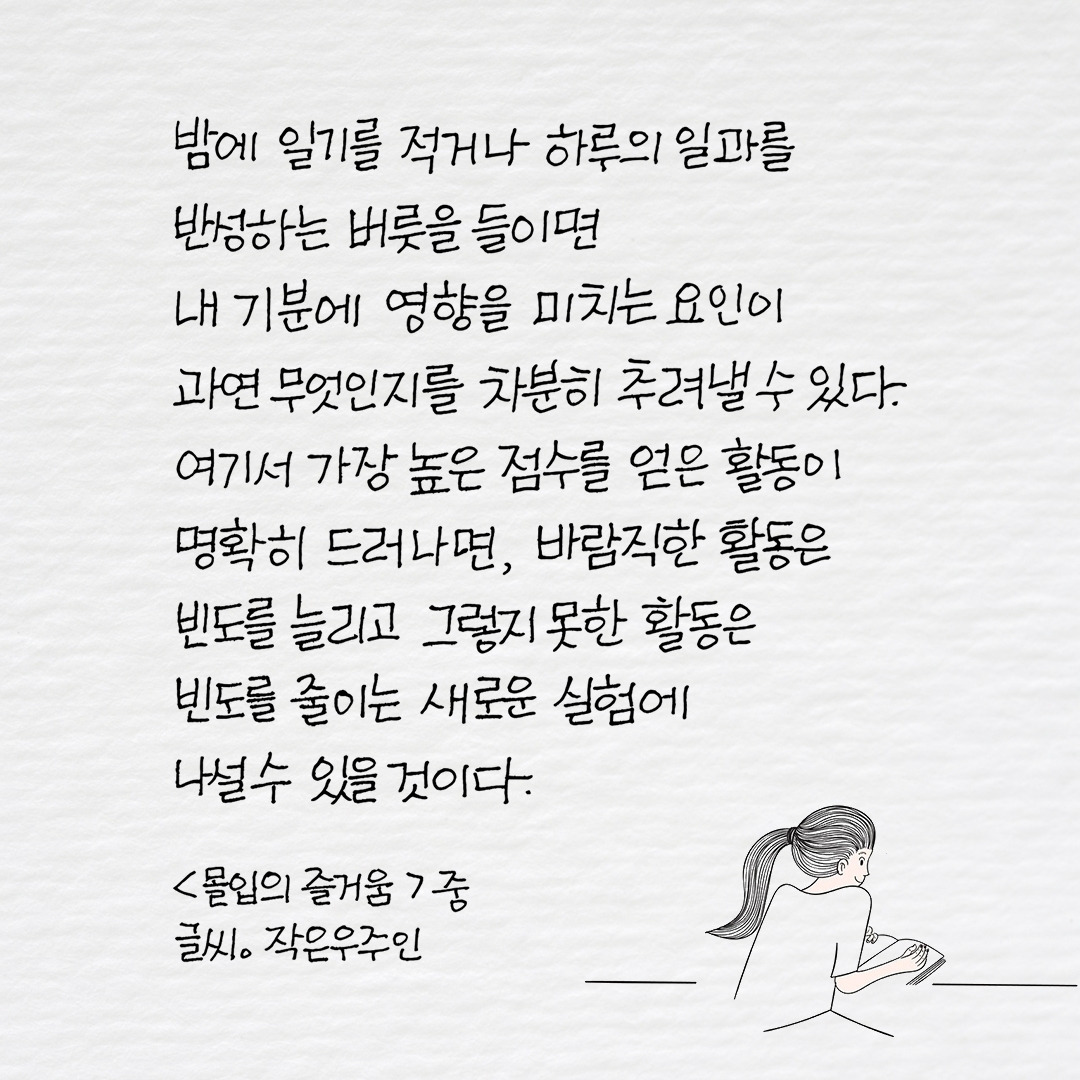 밤에 일기를 적거나 하루의 일과를
반성하는 버릇을 들이면
내 기분에 영향을 미치는 요인이
과연 무엇인지를 차분히 추려낼 수 있다.
여기서 가장 높은 점수를 얻은 활동이
명확히 드러나면, 바람직한 활동은
빈도를 늘리고 그렇지 못한 활동은
빈도를 줄이는 새로운 실험에
나설 수 있을 것이다.
<몰입의 즐거움> 중
글씨。 작은우주인